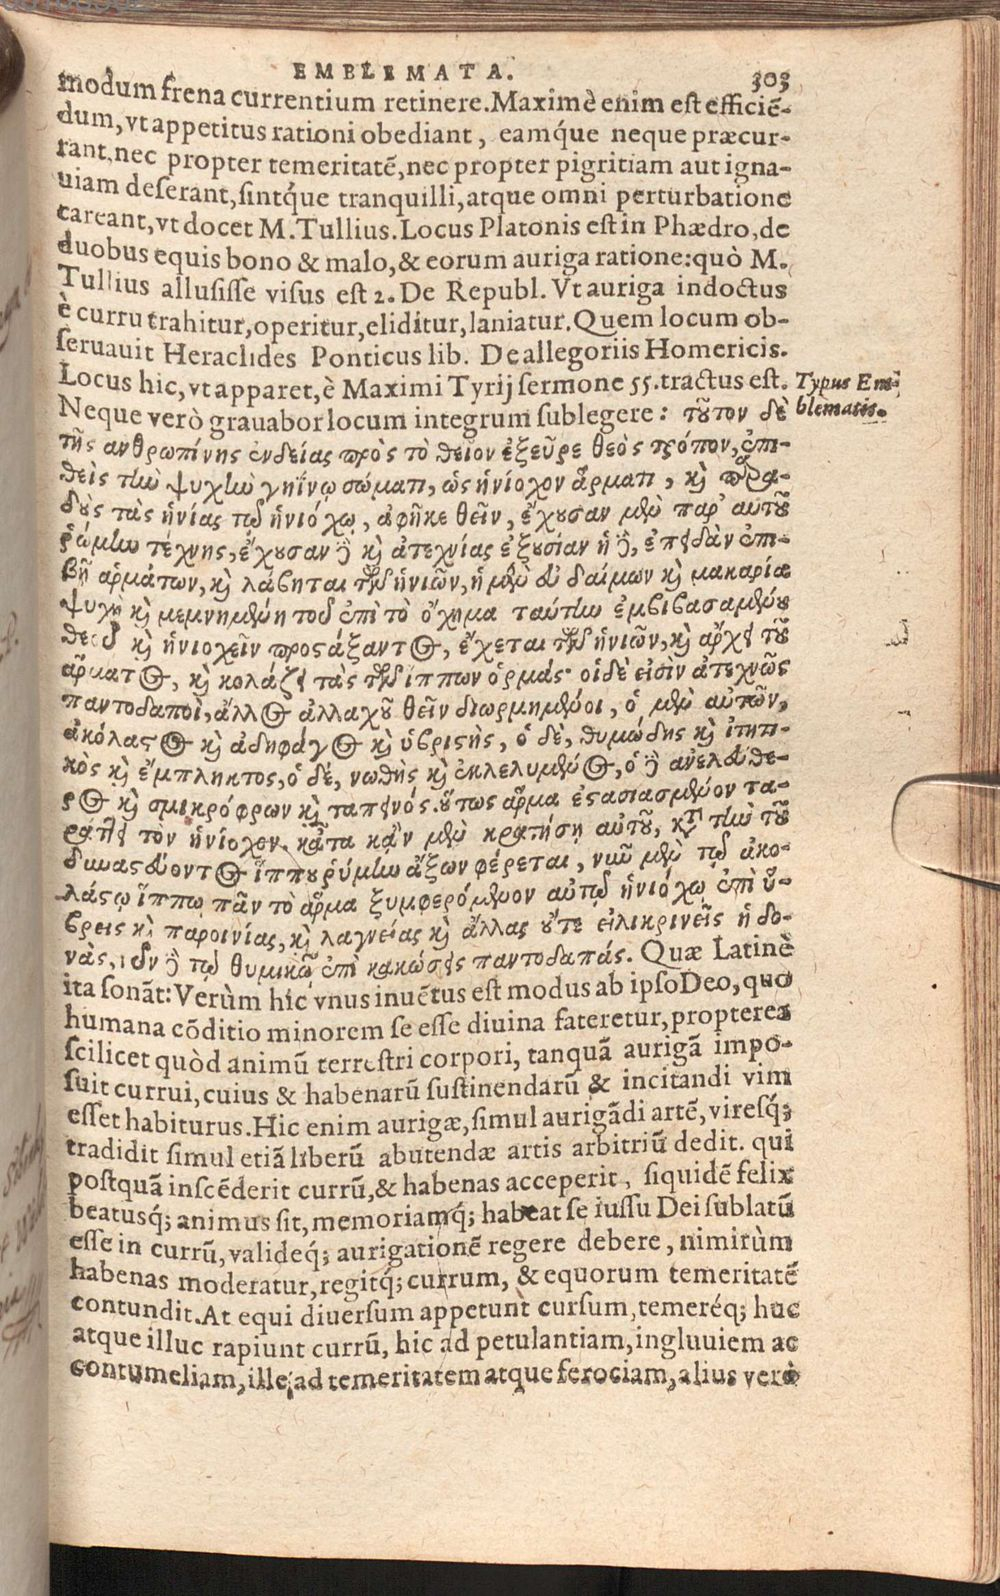 EMBLEMATA. 303
modum frena currentium retinere. Maximè enim est efficiẽ-
dum, vt appetitus rationi obediant, eamq́ue neque præcur-
rant, nec propter temeritatẽ, nec propter pigritiam aut igna-
uiam deserant, sintq́ue tranquilli, atque omni perturbatione
careant, vt docet M. Tullius. Locus Platonis est in Phædro, de
duobus equis bono & malo, & eorum auriga ratione: quò M.
Tullius allusisse visus est 2. De Republ. Vt auriga indoctus
è curru trahitur, operitur, eliditur, laniatur. Quem locum ob-
seruauit Heraclides Ponticus lib. De allegoriis Homericis.
Locus hic, vt apparet, è Maximi Tyrij sermone 55. tractus est.
Typus Em-
blematis.
Neque verò grauabor locum integrum sublegere: τοῦτον δὲ
τῆς ἀνθρωπίνης ἐνδείας πρὸς τὸ θεῖον ἐξεῦρε θεὸς τρόπον, ἐπι-
θεὶς τὴν ψυχὴν γηΐνῳ σώματι, ὡς ἡνίοχον ἅρματι, καὶ παρα-
δοὺς τὰς ἡνίας τῷ ἡνιόχῳ, ἀφῆκε θεῖν, ἔχουσαν μὲν παρ' αὐτοῦ
ῥώμην τέχνης, ἔχουσαν δὲ καὶ ἀτεχνίας ἐξουσίαν ἡ δὲ, ἐπειδὰν ἐπι-
βῇ ἁρμάτων, καὶ λάβηται τῶν ἡνιῶν, ἡ μὲν εὐδαίμων καὶ μακαρία
ψυχὴ καὶ μεμνημένη τοῦ ἐπὶ τὸ ὄχημα ταύτην ἐμβιβασαμένου
θεοῦ καὶ ἡνιοχεῖν προστάξαντος, ἔχεται τῶν ἡνιῶν, καὶ ἄρχει τοῦ
ἅρματος, καὶ κολάζει τὰς τῶν ἵππων ὁρμάς· οἱ δὲ εἰσὶν ἀτεχνῶς
παντοδαποὶ, ἄλλος ἀλλαχοῦ θεῖν διωρμημένοι, ὁ μὲν αὐτῶν,
ἀκόλαστος καὶ ἀδηφάγος καὶ ὑβριστὴς, ὁ δὲ, θυμώδης καὶ ἰτητι-
κὸς καὶ ἔμπληκτος, ὁ δέ, νωθὴς καὶ ἐκλελυμένος, ὁ δὲ ἀνελεύθε-
ρος καὶ σμικρόφρων καὶ ταπεινός. οὕτως ἅρμα ἐστασιασμένον τα-
ράττει τὸν ἡνίοχον. κᾆτα κἂν μὲν κρατήσῃ αὐτοῦ, κατὰ τὴν τοῦ
δυναστεύοντος ἵππου ῥύμην ἄξων φέρεται, νῦν μὲν τῷ ἀκο-
λάστῳ ἵππῳ πᾶν τὸ ἅρμα ξυμφερόμενον αὐτῷ ἡνιόχῳ ἐπὶ ὕ-
βρεις καὶ παροινίας, καὶ λαγνείας καὶ ἄλλας οὔτε εἰλικρινεῖς ἡδο-
νὰς, νῦν δὲ τῷ θυμικῷ ἐπὶ κακώσεις παντοδαπάς. Quæ Latinè
ita sonãt: Verùm hic vnus inuẽtus est modus ab ipso Deo, quo
humana cõditio minorem se esse diuina fateretur, propterea
scilicet quòd animũ terrestri corpori, tanquã aurigã impo-
suit currui, cuius & habenarũ sustinendarũ & incitandi vim
esset habiturus. Hic enim aurigæ, simul aurigãdi artẽ, viresq́;
tradidit simul etiã liberũ abutendæ artis arbitriũ dedit. qui
postquã inscẽderit currũ, & habenas acceperit, siquidẽ felix
beatusq́; animus sit, memoriamq́; habeat se iussu Dei sublatũ
esse in currũ, valideq́; aurigationẽ regere debere, nimirùm
habenas moderatur, regitq́; currum, & equorum temeritatẽ
contundit. At equi diuersum appetunt cursum, temeréq; huc
atque illuc rapiunt currũ, hic ad petulantiam, ingluuiem ac
contumeliam, ille ad temeritatem atque ferociam, alius verò